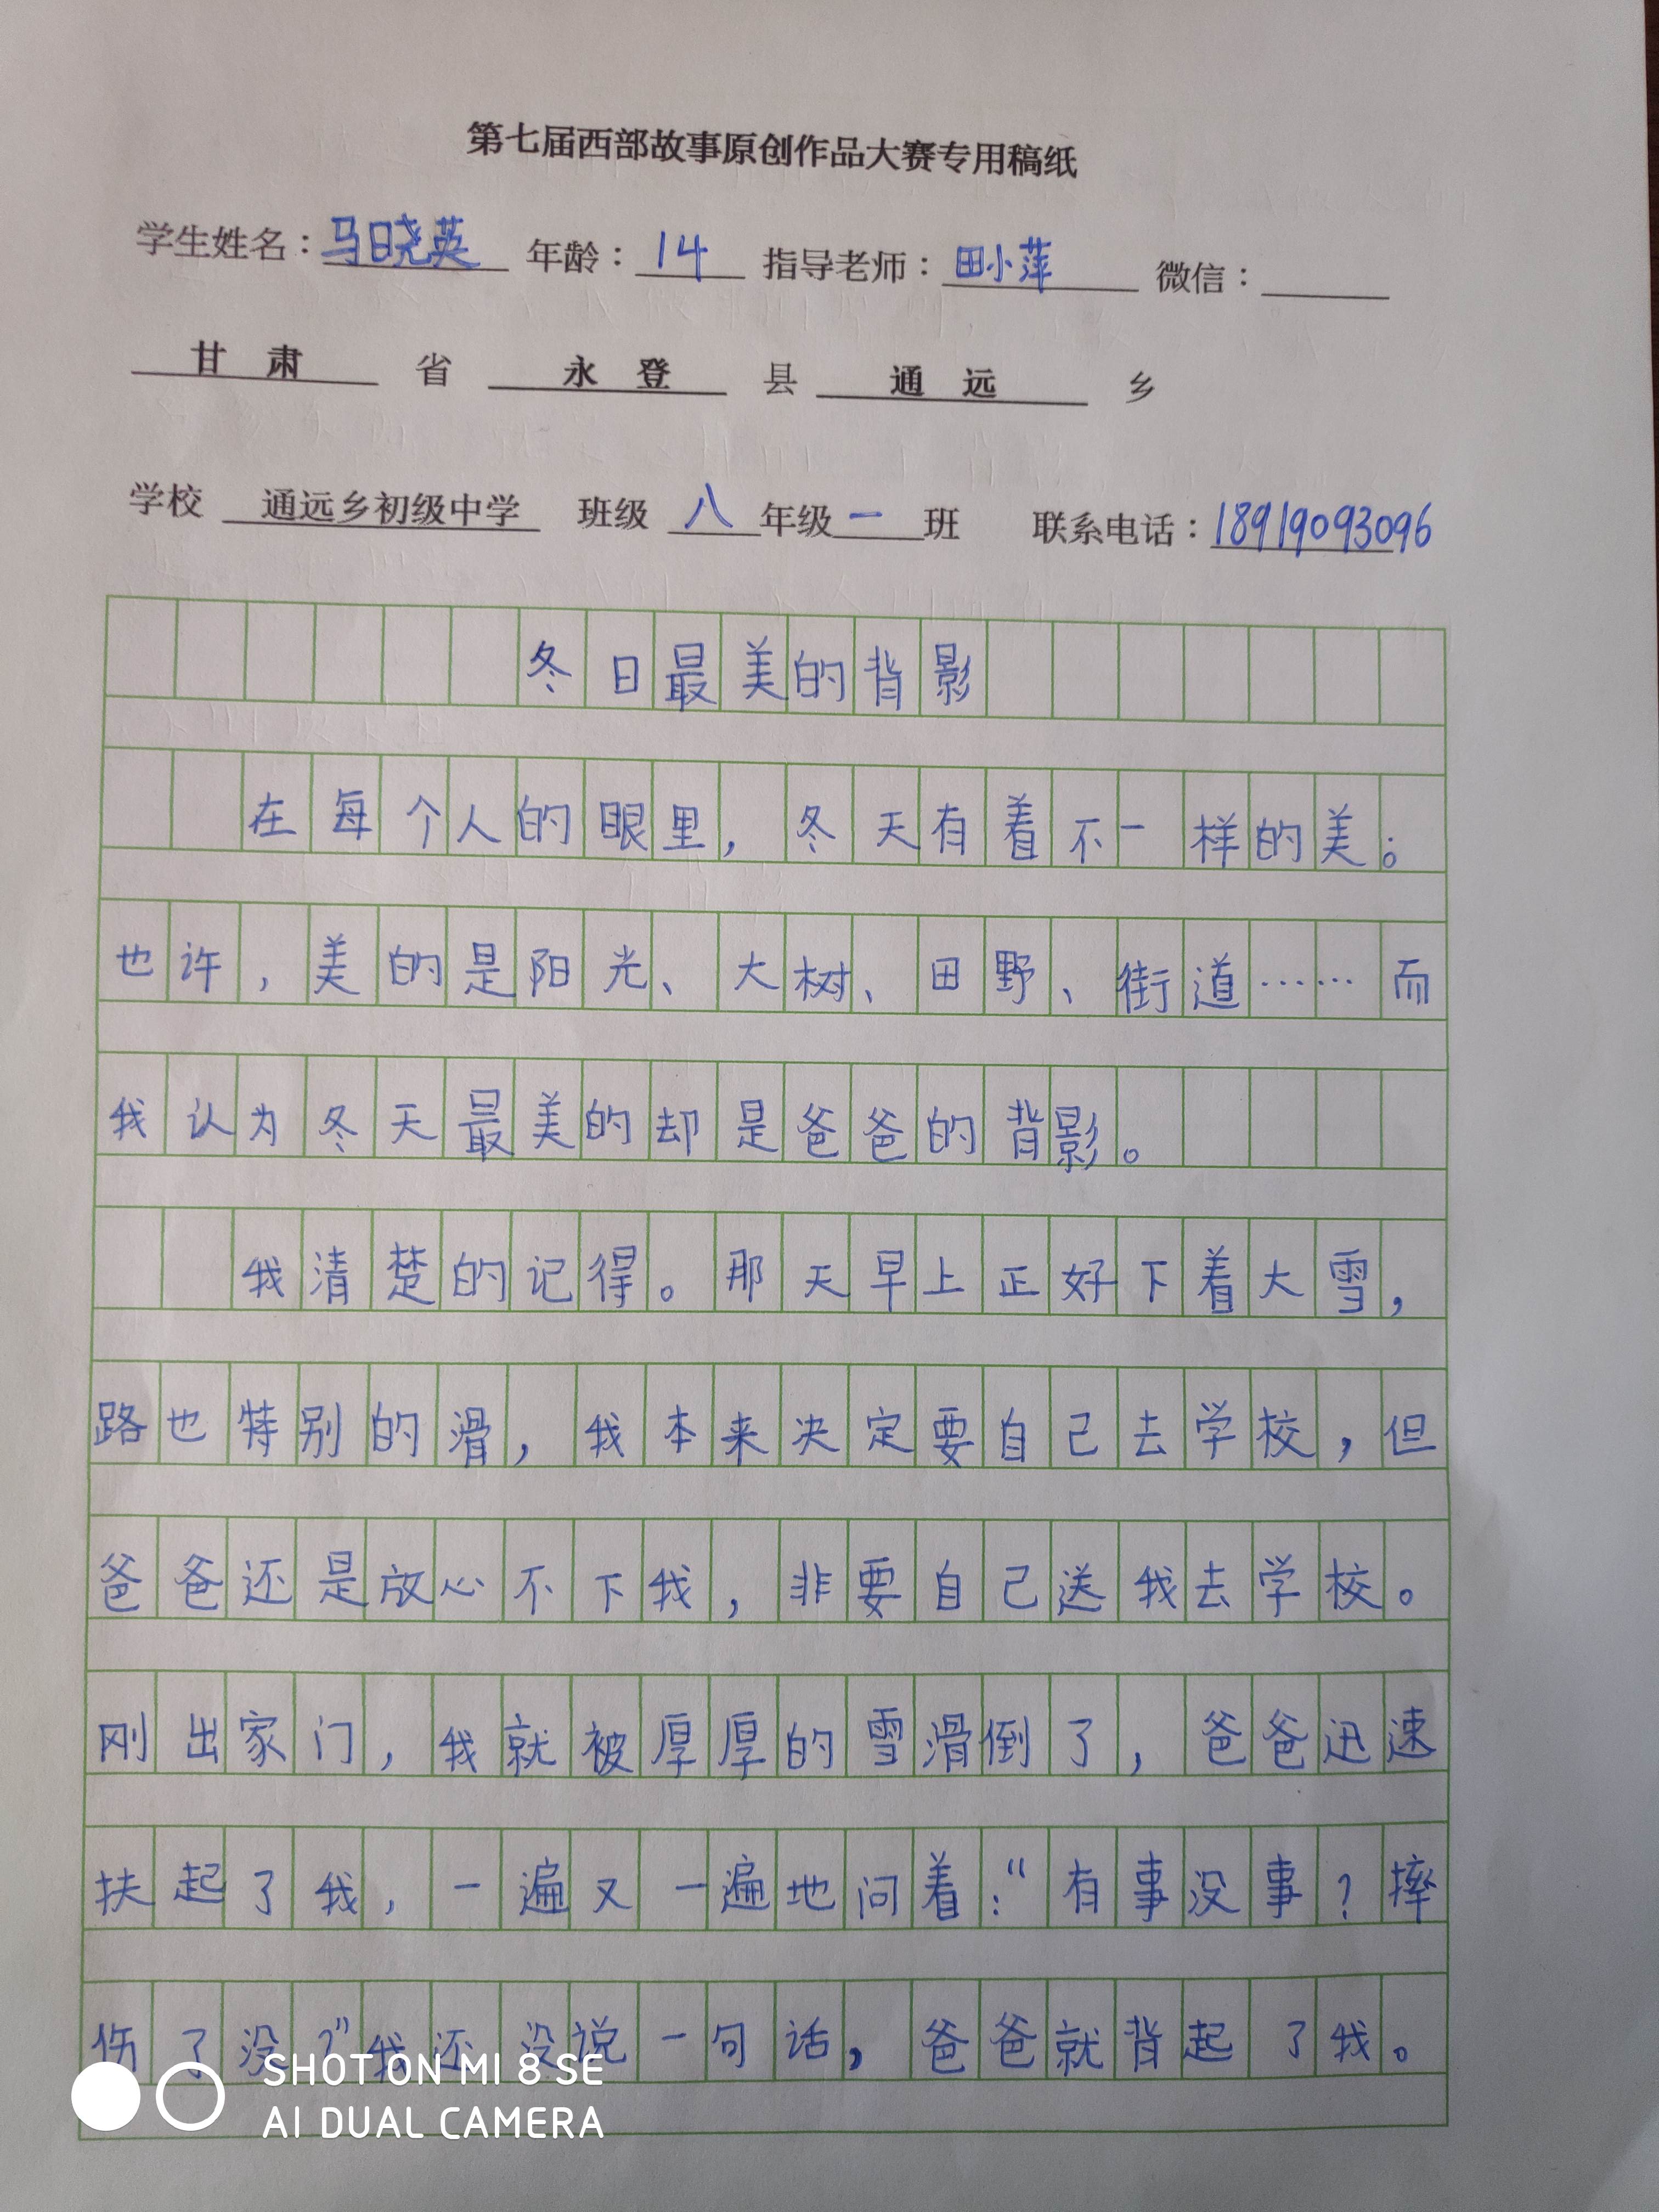 第七届西部故事原创作品大赛专用稿纸
学生姓名：马晓英 年龄：14 指导老师：田小萍 微信：
甘肃 省 永登 县 通远 乡
学校 通远乡初级中学 班级 八 年级 一 班 联系电话：18919093096
冬日最美的背影
在每个人的眼里，冬天有着不一样的美；
也许，美的是阳光、大树、田野、街道……而
我认为冬天最美的却是爸爸的背影。
我清楚的记得。那天早上正好下着大雪，
路也特别的滑，我本来决定要自己去学校，但
爸爸还是放心不下我，非要自己送我去学校。
刚出家门，我就被厚厚的雪滑倒了，爸爸迅速
扶起了我，一遍又一遍地问着：“有事没事？摔
伤了没？”我还没说一句话，爸爸就背起了我。
SHOT ON MI 8 SE
AI DUAL CAMERA